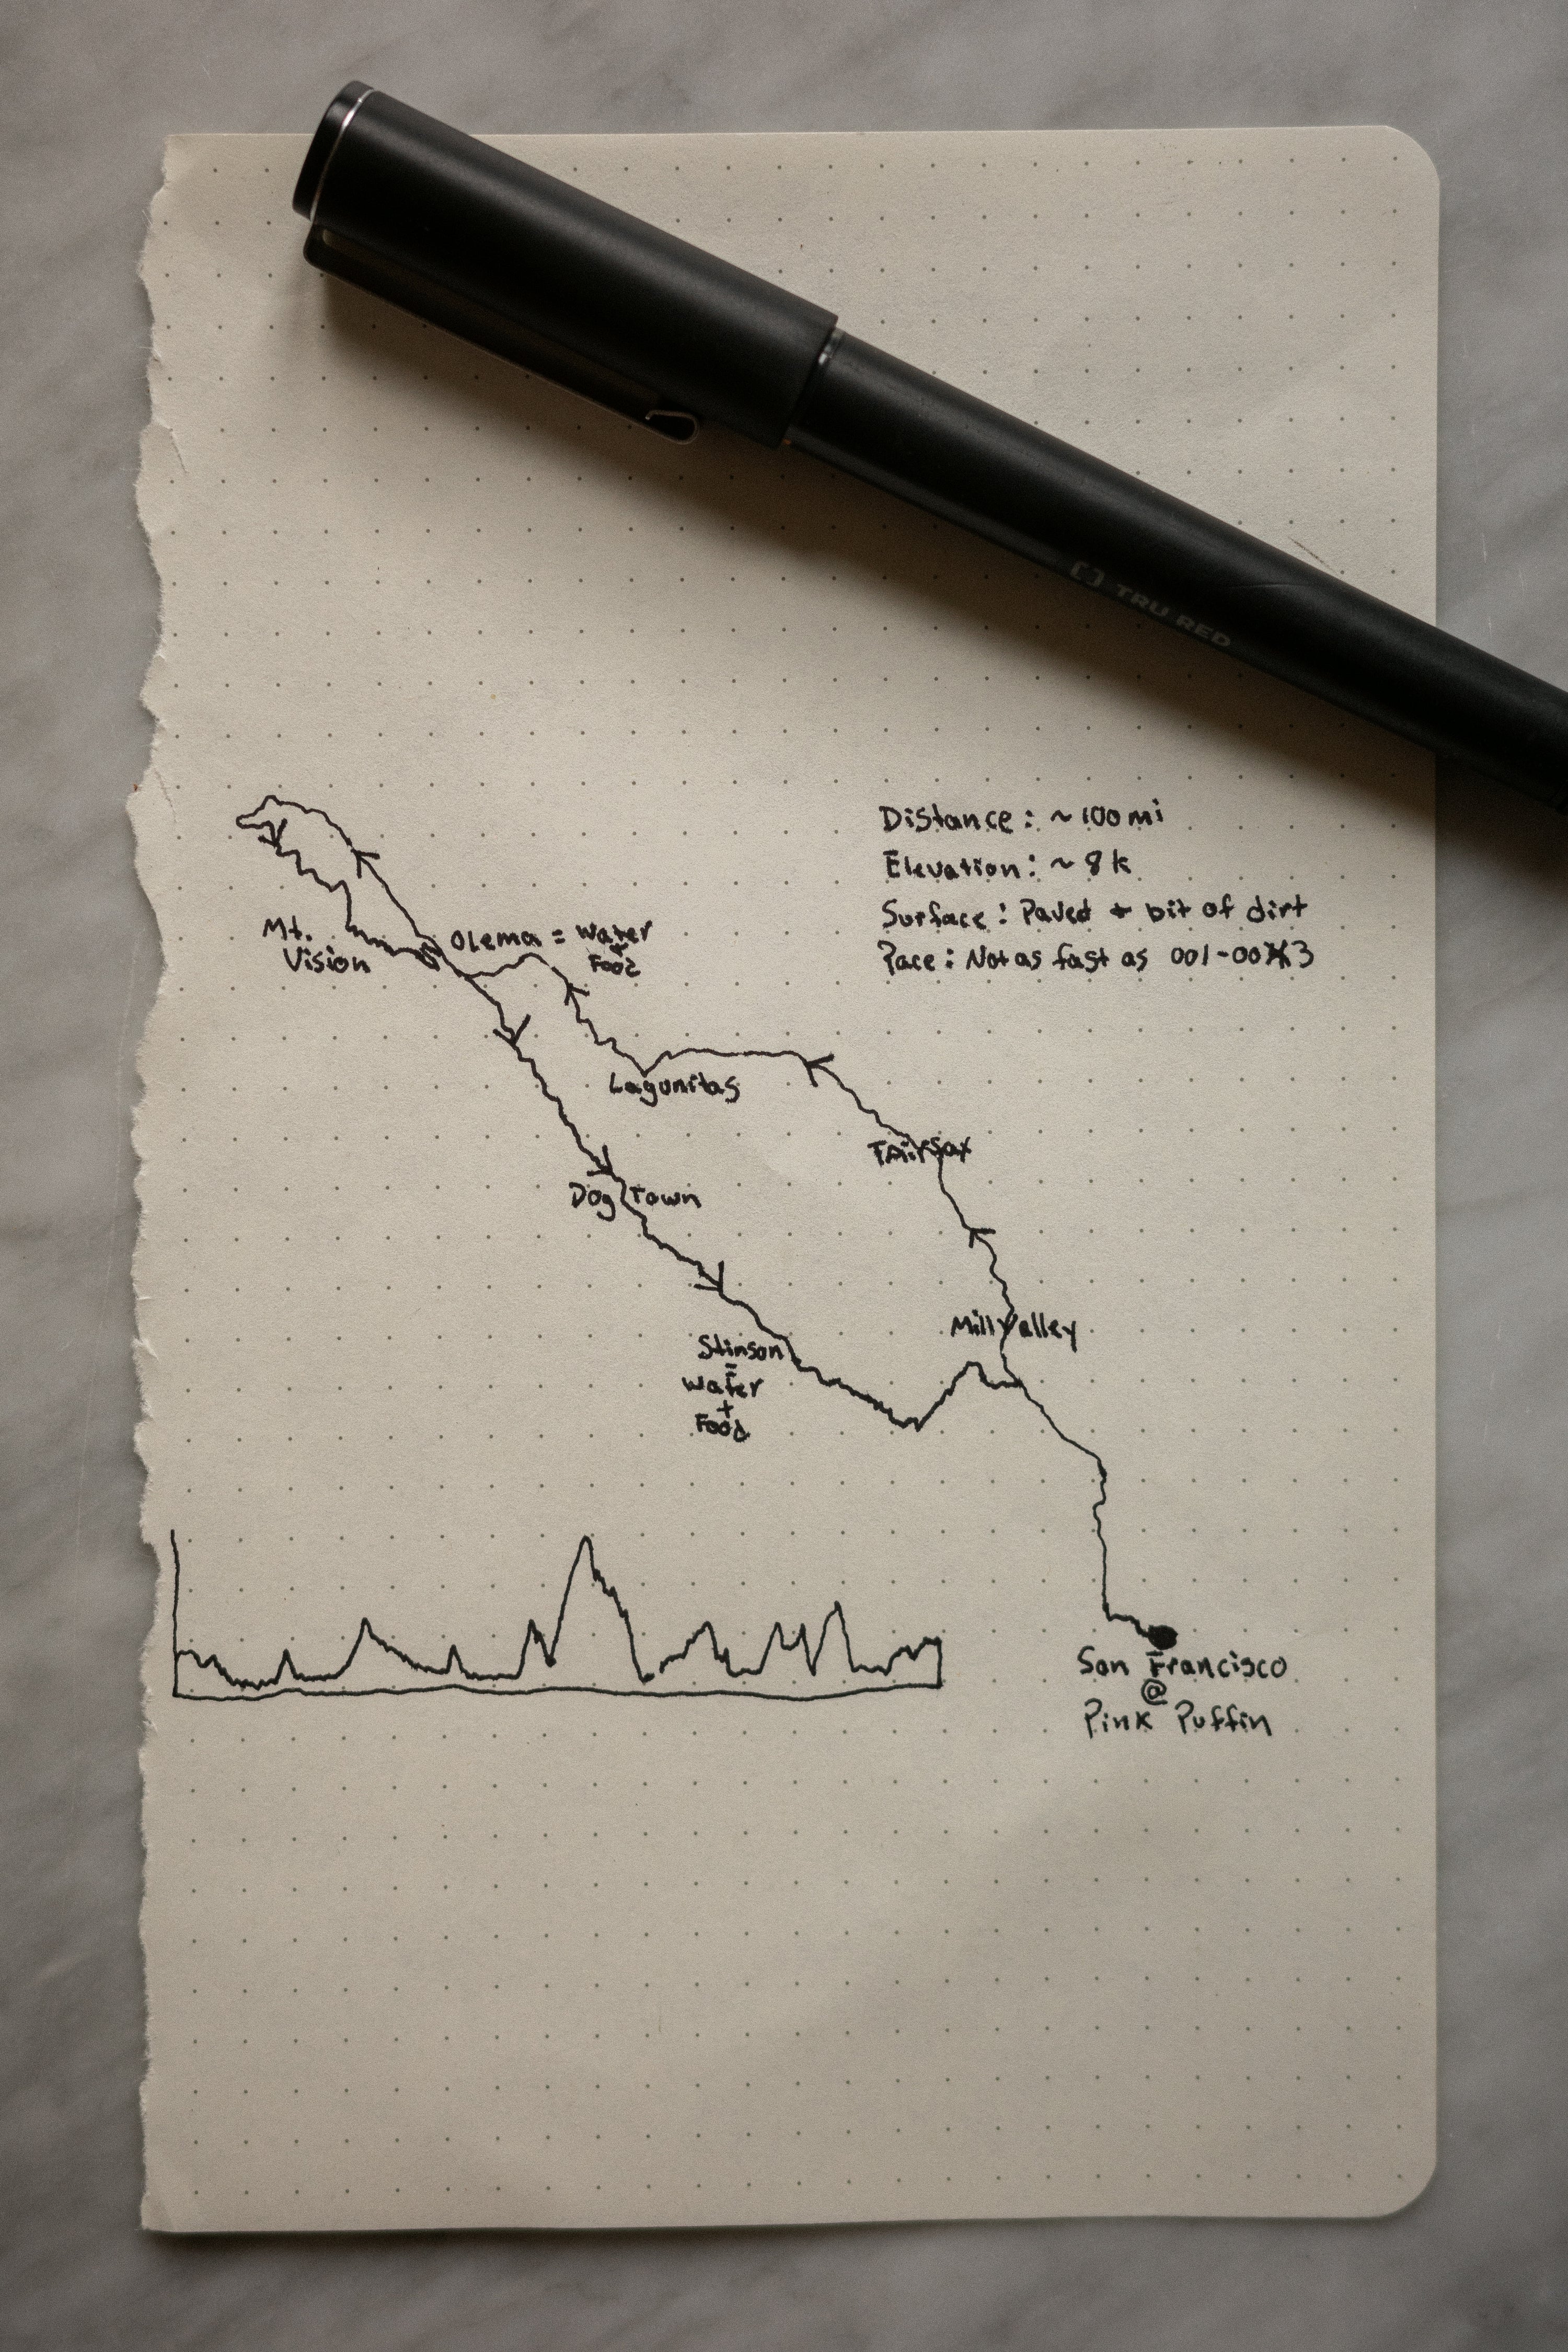 [] TRU RED
Distance: ~100mi
Elevation: ~8k
Surface: Paved + bit of dirt
Pace: Not as fast as 001-003
Mt.
Vision
Olema = Water
+
Food
Lagunitas
Fairfax
Dog Town
Mill Valley
Stinson
=
Water
+
Food
San Francisco
@
Pink Puffin